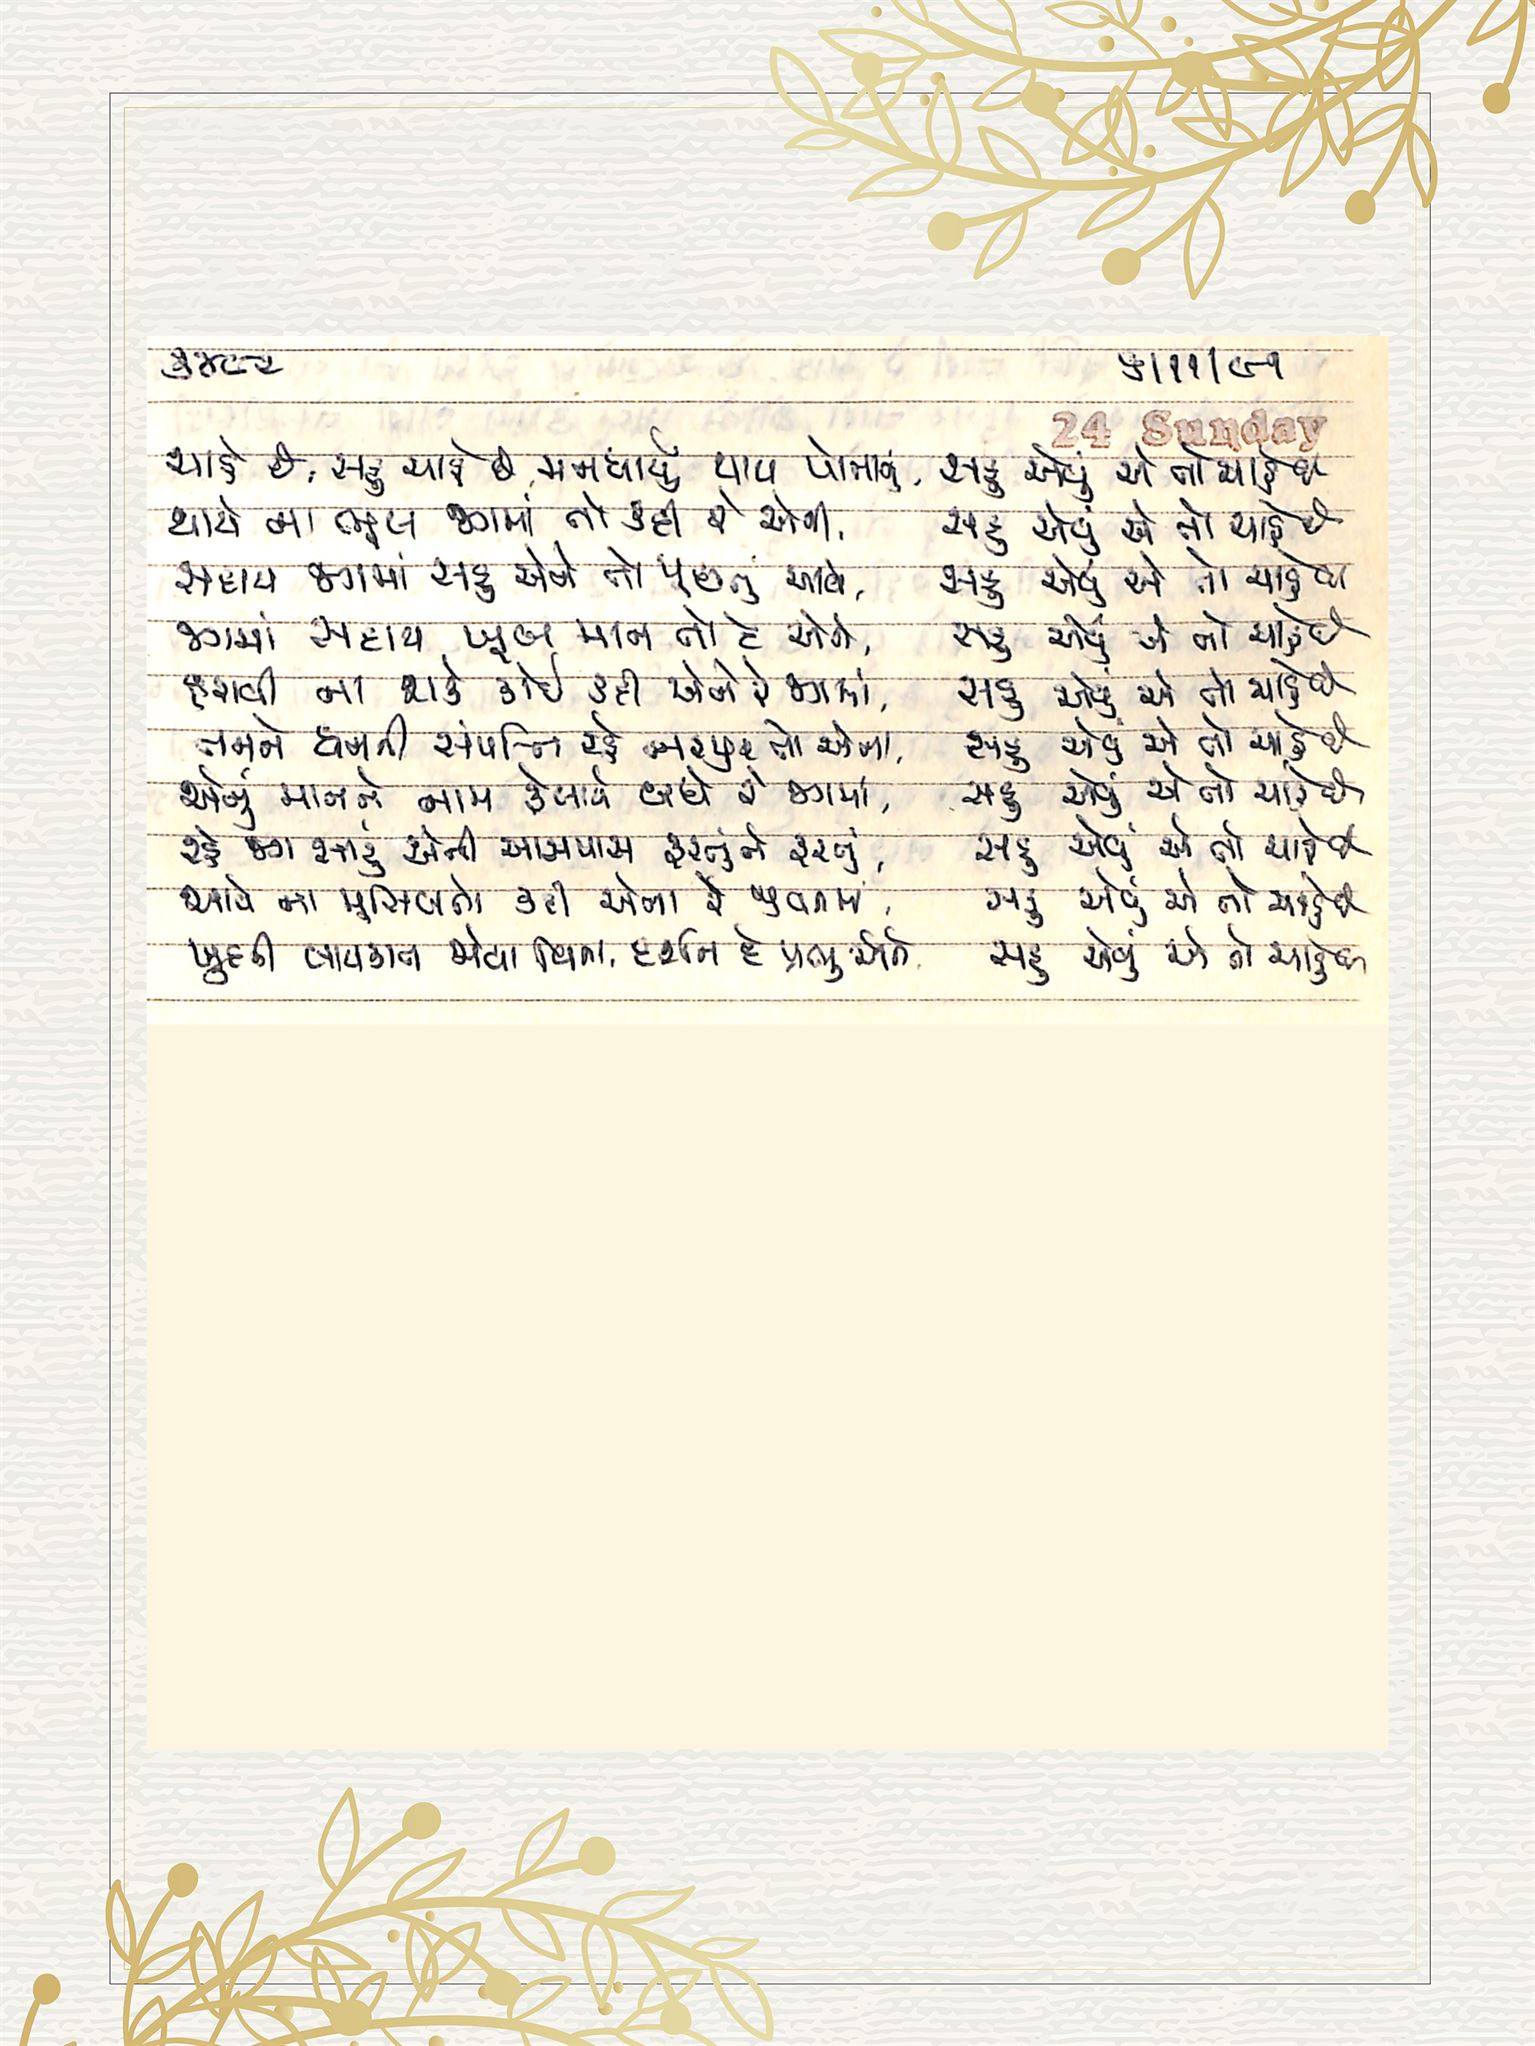 ૩૪૮૨ ૫/૧૧/૯૧
24 Sunday
ચાહે છે, સહુ ચાહે છે, મનધાર્યું થાય પોતાનું, સહુ એવું એ તો ચાહે છે
થાયે ના ભૂલ જગમાં તો કદી રે એની, સહુ એવું એ તો ચાહે છે
સદાય જગમાં સહુ એને તો પૂછતું આવે, સહુ એવું એ તો ચાહે છે
જગમાં સદાય ખૂબ માન તો દે એને, સહુ એવું એ તો ચાહે છે
હરાવી ના શકે કોઈ કદી એને રે જગમાં, સહુ એવું એ તો ચાહે છે
તનમને ધનની સંપત્તિ રહે ભરપૂર તો એના, સહુ એવું એ તો ચાહે છે
એનું માનને નામ ફેલાયે બધે રે જગમાં, સહુ એવું એ તો ચાહે છે
રહે જગ સારું એની આસપાસ ફરતુંને ફરતું, સહુ એવું એ તો ચાહે છે
આવે ના મુસીબતો કદી એના રે જીવનમાં, સહુ એવું એ તો ચાહે છે
ખુદની લાયકાત જોયા વિના, દર્શન દે પ્રભુ એને, સહુ એવું એ તો ચાહે છે